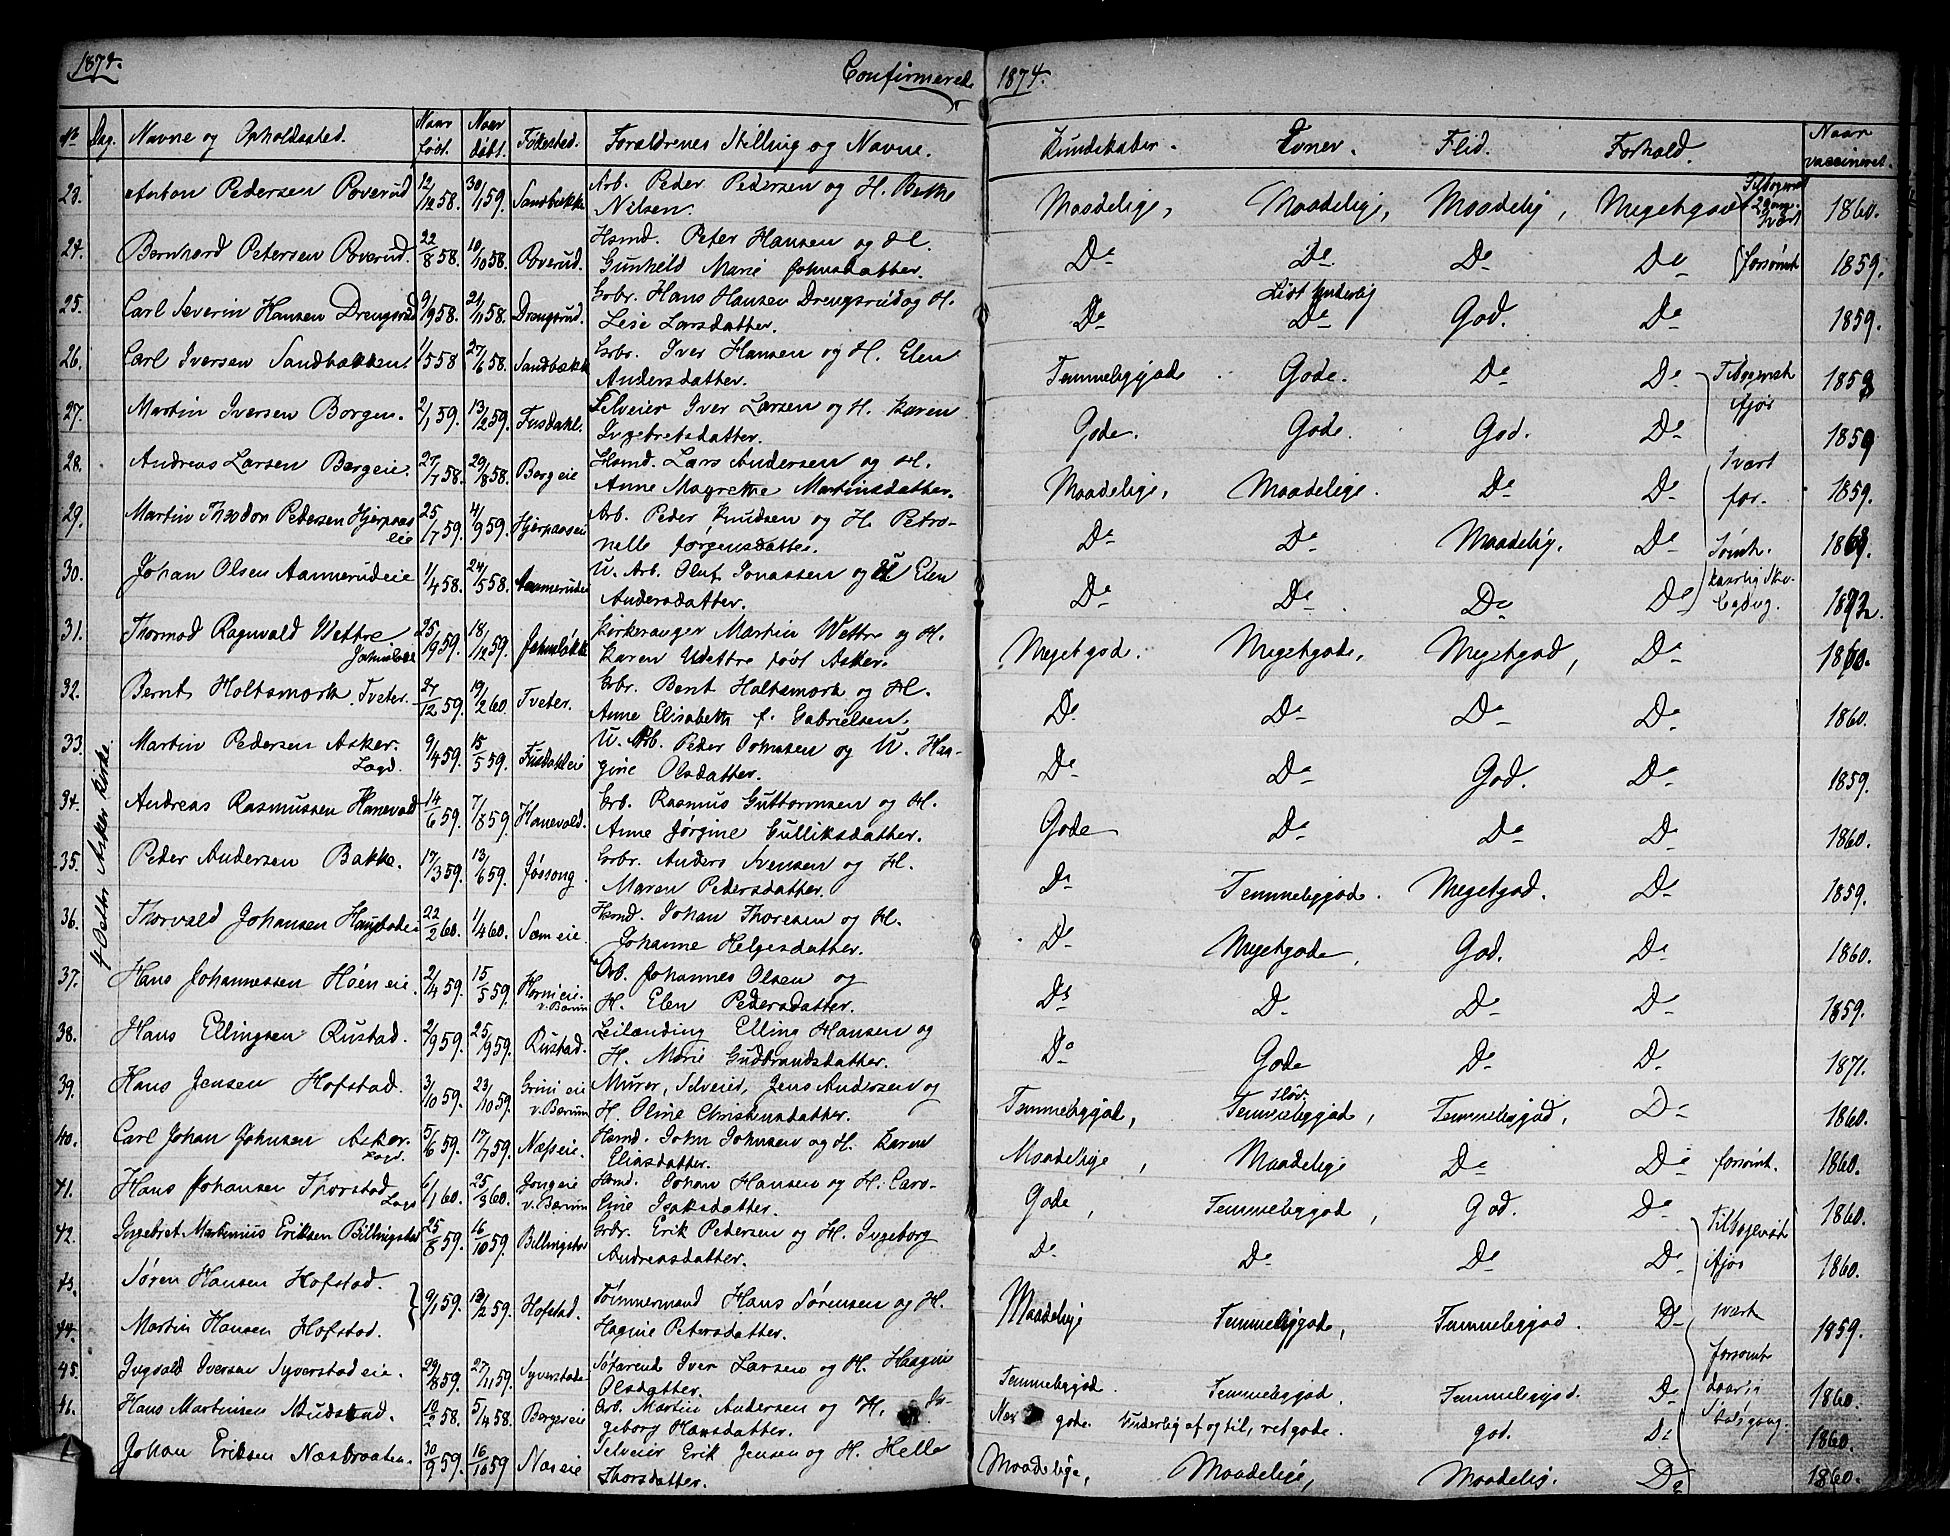 1874. Confirmerede 1874.
No Dag. Navne og Opholdssted. Naar født. Naar døbt. Fødested. Forældrenes Stilling og Navne. Kundskaber. Evner. Flid. Forhold. Naar vaccineret.
f Oestbr Asker Kirke.
23. Anton Pedersen Poverud 12/12 58. 30/1 59. Sandbække Arb. Peder Pedersen og H. Berthe
Nilsen. Maadelige, Maadelige, Maadelig, Megetgodt 1860.
24. Bernhard Petersen Poverud. 22/8 58. 10/10 58. Poverud. Hsmd. Peter Hansen og H.
Gunhild Marie Johnsdatter. Do Do Do Do forsømt 1859.
25. Carl Severin Hansen Drengsrud 9/9 58. 21/11 58. Drengsrud. Grbr. Hans Hansen Drengsrud og H.
Lise Larsdatter. Do Lidt underlig Do God. Do 1859.
26. Carl Iversen Sandbakken 1/5 58 27/6 58. Sandbakk Grbr. Iver Hansen og H. Elen
Andersdatter. Temmeliggode Gode. Do Do 1859
27. Martin Iversen Borgen. 2/1 59. 13/2 59. Fusdahl. Selveier Iver Larsen og H. Karen
Ingebretsdatter. Gode. Gode. God. Do 1859
28. Andreas Larsen Bergeie. 27/7 58. 29/8 58. Borgeie Hsmd. Lars Andersen og H.
Anne Magrethe Martinsdatter. Maadelige, Maadelige. Do Do 1859.
29. Martin Theodor Pedersen Hjerpaas
eie 25/7 59. 4/9 59. Hjerpaaseie Arb. Peder Knudsen og H. Petro-
nelle Jørgensdatter. Do Do Maadelig. Do
30. Johan Olsen Aamerudeie 1/4 58. 24/5 58. Aamerudeie U. Arb. Oluf Jonassen og U Elen
Andersdatter. Do Do Do Do
31. Thormod Ragnvald Wettre
25/9 59. 18/12 59. Johnsløkke Kirkesanger Martin Wettre og H.
Karen Wettre født Asker. Megetgod. Megetgode, Megetgod, Do
32. Bernt Holtsmark. Tveter. 27/12 59. 19/2 60. Tveter. Gbr. Bernt Holtsmark og H.
Anne Elisabeth f. Gabrielsen. Do Do Do Do 1860.
33. Martin Pedersen Asker. 9/4 59. 15/5 59. Fusdahleie U. Arb. Peder Johnsen og U. Haa-
gine Olsdatter. Do Do God. Do 1859.
34. Andreas Rasmussen Hanevold 14/6 59. 7/8 59. Hanevold. Gbr. Rasmus Guttormsen og H.
Anne Jørgine Gulliksdatter. Gode Do Do Do 1860.
35. Peder Andersen Bakke. 17/3 59. 13/6 59. Jøssong Gbr. Anders Svensen og H.
Maren Pedersdatter. Do Temmeliggode. Megetgod. Do 1859.
36. Thorvald Johansen 22/2 60. 1/4 60. Semeie. Hsmd. Johan Thoresen og H.
Johanne Helgesdatter. Do Megetgode, God. Do 1860.
37. Hans Johannessen Höeneie. 2/4 59. 15/5 59. v. Bærum Arb. Johannes Olsen og
H. Elen Pedersdatter. Do Do Do Do 1859.
38. Hans Ellingsen Rustad. 2/9 59. 25/9 59. Rustad. Leilænding Elling Hansen og
H. Marie Gudbrandsdatter. Do Gode Do Do 1871.
39. Hans Jensen Hofstad. 3/10 59. 23/10 59. Grini eie v. Bærum Murer, Selveier, Jens Andersen og
H. Oline Christensdatter. Temmeliggod, Sløv Temmeliggode, Temmeliggod. Do 1860.
40. Carl Johan Johnsen Asker. 5/6 59. 17/7 59. Næseie. Hsmd. John Johnsen og H. Karen
Eliasdatter. Maadelige, Maadelige Do Do forsømt. 1860.
41. Hans Johansen Thorstad 6/1 60. 25/3 60. Jongeie v. Bærum Hsmd. Johan Hansen og H. Caro-
line Isaksdatter. Gode, Temmeliggod, God. Do 1860.
42. Ingebret Martinius Eriksen Billingstad 25/8 59. 16/10 59. Billingstad Grbr. Erik Pedersen og H. Ingeborg
Andreasdatter. Do Do Do Do 1860.
43. Søren Hansen Hofstad.
9/1 59. 13/2 59. Hofstad. Tømmermand Hans Sørensen og H.
44. Martin Hansen Hofstad. Hagine Petersdatter. Maadelige Temmeliggode, Temmeliggod. Do 1859.
45. Ingvald Iversen Syverstadeie. 29/8 59. 27/11 59. Syverstade Søfarend Iver Larsen og H. Haagine
Olsdatter. Temmeliggod. Temmeliggod. Temmeliggod. Do 1860.
46. Hans Martinsen 10/2 58. 5/4 58. Bergseie Arb. Martin Andersen og H. In-
geborg Hansdatter. gode. Underlig af og til, ret gode. god. Do 1860.
Johan Eriksen Næsbraaten. 30/9 59. 16/10 59 Næseie Selveier Erik Jensen og H. Helle
Thorsdatter. Maadelige, Maadelige, Maadelig. Do 1860.